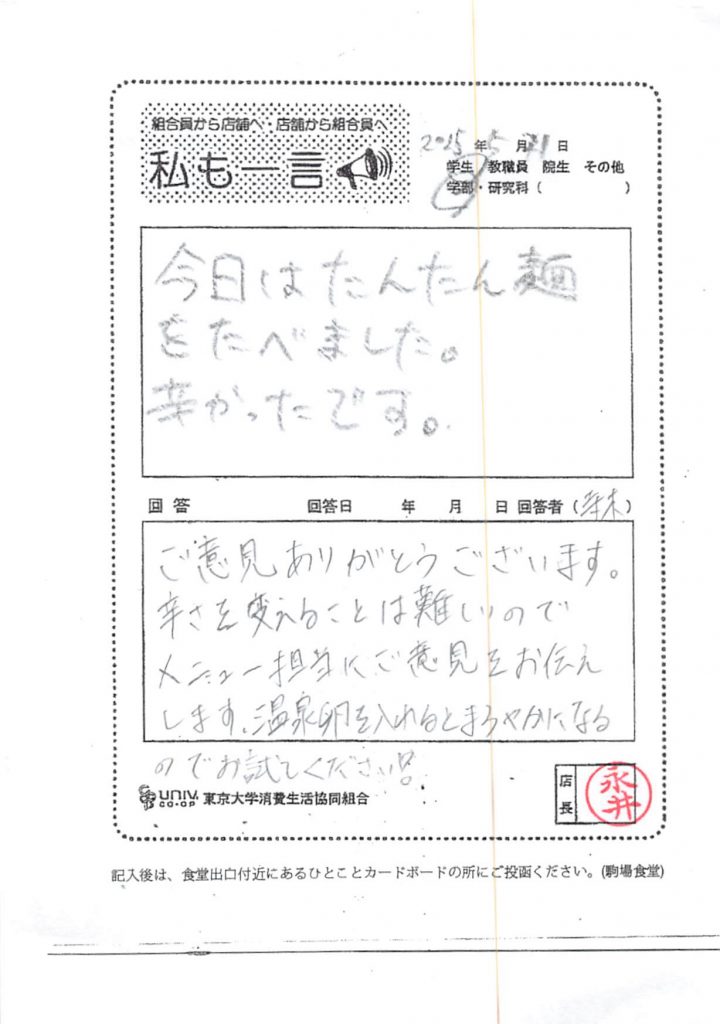 組合員から店舗へ・店舗から組合員へ
私も一言
2015年5月21日
学生 教職員 院生 その他
学部・研究科( )
今日はたんたん麺
をたべました。
辛かったです。
回答 回答日 年 月 日 回答者( )
ご意見ありがとうございます。
辛さを変えることは難しいので
メニュー担当にご意見をお伝え
します。温泉卵を入れるとまろやかになる
のでお試しください。
UNIV. CO-OP 東京大学消費生活協同組合
店長 永井
記入後は、食堂出口付近にあるひとことカードボードの所にご投函ください。(駒場食堂)